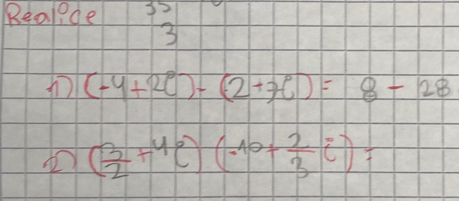 Realice 35
3
1) (-4+2i)-(2+7i) = 8 - 28
2) (3/2 + 4i) (-10 + 2/3 i) =